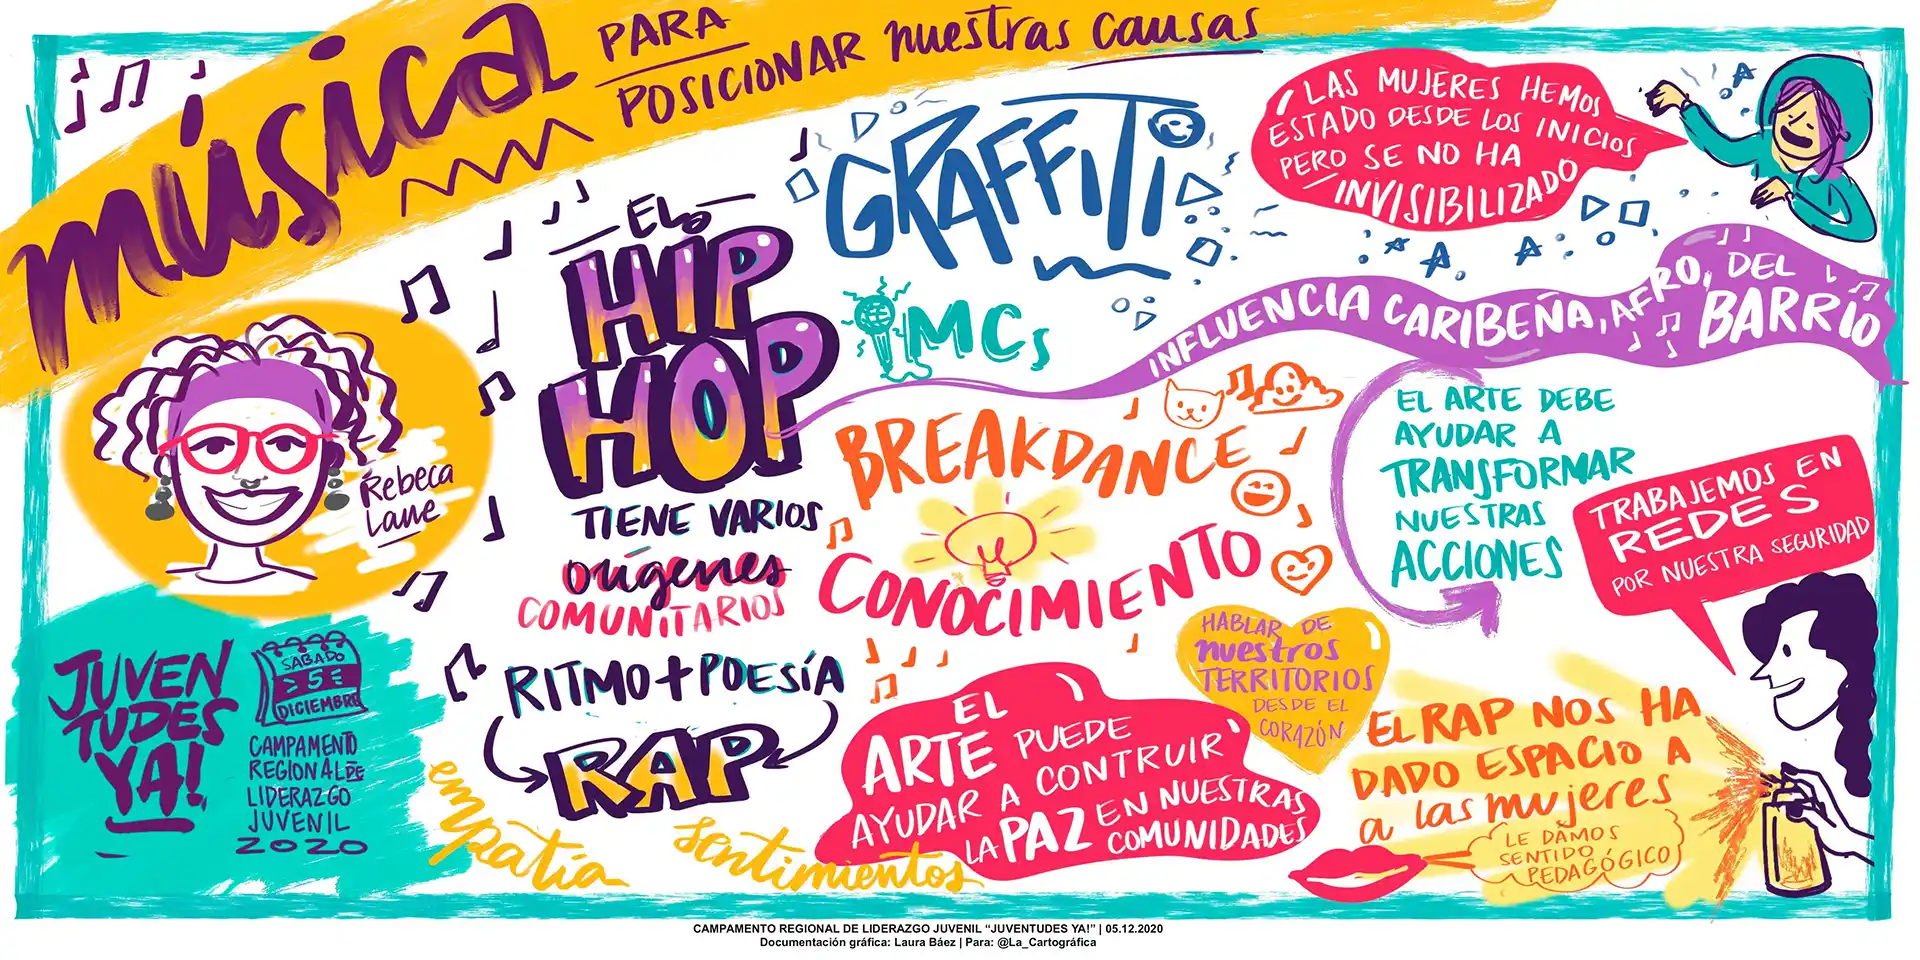 música
PARA
POSICIONAR nuestras causas
Rebeca
Lane
JUVEN
TUDES
YA!
SABADO
>5<
DICIEMBRE
CAMPAMENTO
REGIONAL DE
LIDERAZGO
JUVENIL
2020
EL
HIP
HOP
TIENE VARIOS
orígenes
COMUNITARIOS
RITMO+POESÍA
RAP
empatía
sentimientos
GRAFFITI
MCs
INFLUENCIA CARIBEÑA, AFRO, DEL
BARRIO
BREAKDANCE
CONOCIMIENTO
EL
ARTE PUEDE
AYUDAR A CONTRUIR
LA PAZ EN NUESTRAS
COMUNIDADES
HABLAR DE
nuestros
TERRITORIOS
DESDE EL
CORAZÓN
LAS MUJERES HEMOS
ESTADO DESDE LOS INICIOS
PERO SE NO HA
INVISIBILIZADO
EL ARTE DEBE
AYUDAR A
TRANSFORMAR
NUESTRAS
ACCIONES
TRABAJEMOS EN
REDES
POR NUESTRA SEGURIDAD
EL RAP NOS HA
DADO ESPACIO A
a las mujeres
LE DAMOS
SENTIDO
PEDAGÓGICO
CAMPAMENTO REGIONAL DE LIDERAZGO JUVENIL “JUVENTUDES YA!” | 05.12.2020
Documentación gráfica: Laura Báez | Para: @La_Cartográfica